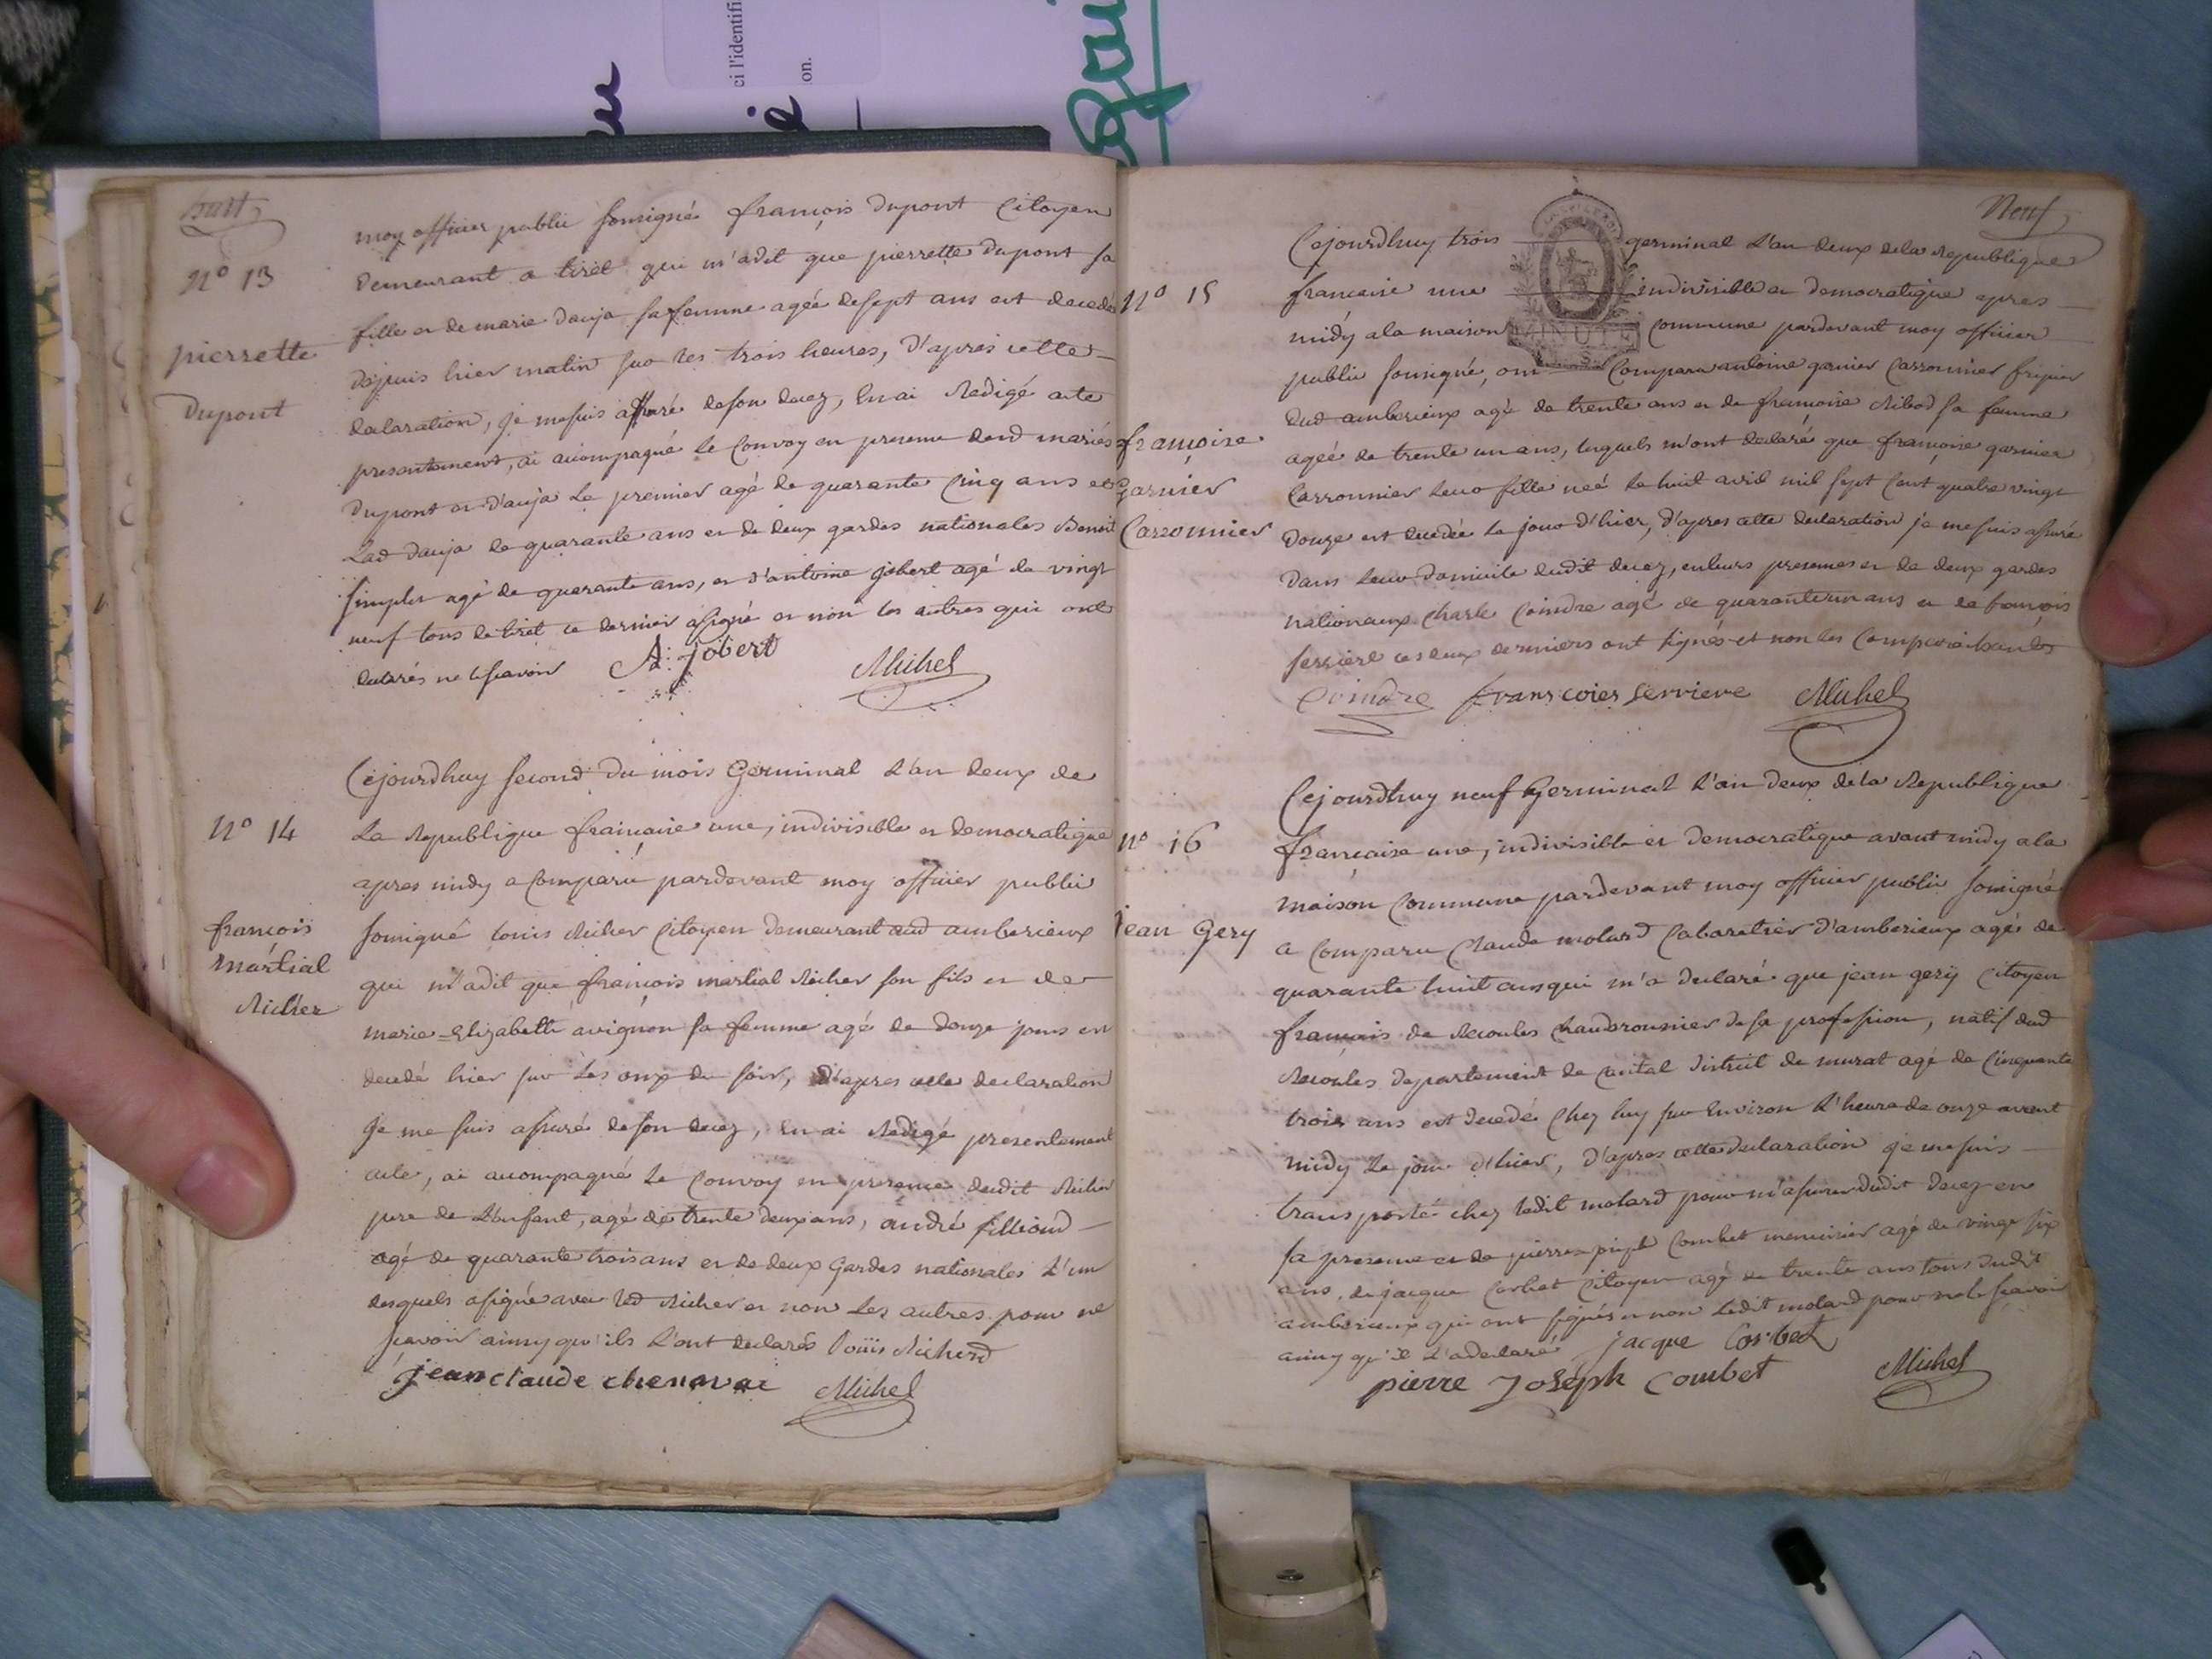 ci l'identifi
on.
huit
moy officier public sousigné françois Dupont Citoyen
N° 13
demeurant a tiret qui m'a dit que pierrette Dupont sa
fille et de marie dauja sa femme agée de sept ans est decedée
pierrette
Dupont
depuis hier matin sur les trois heures, d'apres cette
declaration, je me suis assuré de son decez, En ai Redigé acte
presentement, ai accompagné le Convoy en presence desd mariés
Dupont et dauja le premier agé de quarante Cinq ans et
Lad dauja de quarante ans et de deux gardes nationales Benoit
simplet agé de quarante ans, et d'antoine jobert agé de vingt
neuf tous de tiret ce dernier a signé et non les autres qui ont
declarés ne le scavoir A: jobert Michel
Cejourdhuy second du mois Germinal L'an deux de
N° 14
La Republique francaise une, indivisible et democratique
apres midy a Comparu pardevant moy officier public
françois
martial
Richer
sousigné Louis Richer Citoyen demeurant aud amberieux
qui m'a dit que françois martial Richer son fils et de
marie-Elizabeth avignon sa femme agé de douze jours est
decedé hier sur Les onze du soir, d'apres cette declaration
je me suis assuré de son decez, En ai Redigé presentement
acte, ai accompagné Le Convoy en presence dudit Richer
pere de L'enfant, agé de trente deux ans, andré filliond
agé de quarante trois ans et de deux Gardes nationales L'un
desquels a signé avec led Richer et non Les autres pour ne
scavoir ainsy qu'ils L'ont declarés Louis Richerd
jean claude chenavai Michel
Neuf
Cejourdhuy trois germinal L'an deux de la Republique
N° 15
francaise une indivisible et democratique apres
midy a la maison commune pardevant moy officier
MINUTE
public sousigné, ont Comparu antoine garnier Carronnier fripier
dud amberieux agé de trente ans et de francoise Ribod sa femme
françoise
garnier
Carronnier
agée de trente un ans, lesquels m'ont declaré que françoise garnier
Carronnier leur fille neé le huit avril mil sept Cent quatre vingt
Douze est decedée le jour d'hier, d'apres cette declaration je me suis assuré
dans leur domicile dudit decez, en leurs presences et de deux gardes
nationaux Charle Coindre agé de quarante un ans et de françois
serriere ces deux derniers ont signés et non les Comparaissants
Coindre franscoies serriere Michel
Cejourdhuy neuf Germinal L'an Deux de la Republique
n° 16
francaise une, indivisible et democratique avant midy a la
maison Commune pardevant moy officier public sousigné
jean Gery
a Comparu Claude molard Cabaretier d'amberieux agé de
quarante huit ans qui m'a declaré que jean gery Citoyen
francais de Recoules Chaudronnier de sa profession, natif dud
Recoules departement de Cantal district de murat agé de Cinquante
trois ans est decedé Chez luy sur Environ L'heure de onze avant
midy Le jour d'hier, D'apres cette declaration je me suis
transporté chez ledit molard pour m'assurer dudit decez en
sa presence et de pierre joseph Combet menuisier agé de vingt six
ans, de jacque Corbet Citoyen agé de trente ans tous dudit
amberieux qui ont signés et non Ledit molard pour ne le scavoir
ainsy qu'il L'a declaré jacque Corbet
pierre Joseph combet Michel